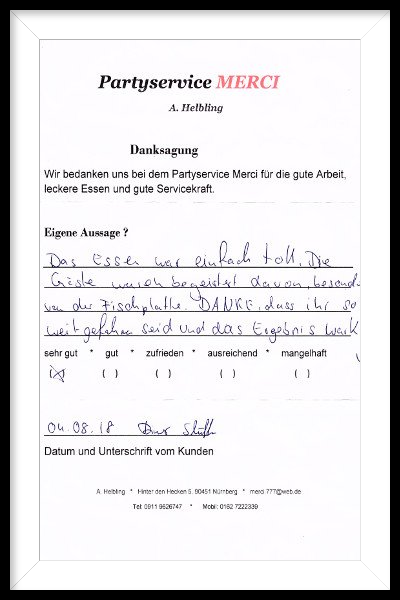 Partyservice MERCI
A. Helbling
Danksagung
Wir bedanken uns bei dem Partyservice Merci für die gute Arbeit,
leckere Essen und gute Servicekraft.
Eigene Aussage ?
Das Essen war einfach toll. Die
Gäste waren begeistert davon, besond.
von der Fischplatte. DANKE, dass ihr so
weit gefahren seid und das Ergebnis
sehr gut * gut * zufrieden * ausreichend * mangelhaft
(x) ( ) ( ) ( ) ( )
04.08.18
Datum und Unterschrift vom Kunden
A. Helbling * Hinter den Hecken 5, 90451 Nürnberg * merci.777@web.de
Tel: 0911 9626747 * Mobil: 0162 7222339